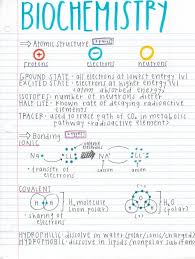 BIOCHEMISTRY
Atomic structure
protons electrons neutrons
GROUND STATE - all electrons at lowest energy lvl
EXCITED STATE - electrons at higher energy lvl
(atom absorbed energy)
ISOTOPE - number of neutrons differ
HALF LIFE - known rate of decaying radioactive
elements
TRACER - used to trace path of CO₂ in metabolic
pathway (radioactive element)
Bonding
IONIC
Na Cl Na Cl
transfer of electrons
cation anion
COVALENT
H H
H₂ molecule
(non polar)
H₂O molecule
(polar)
sharing of
electrons
HYDROPHILIC: dissolve in water (polar/ionic/charged)
HYDROPHOBIC: dissolve in lipids/nonpolar substan